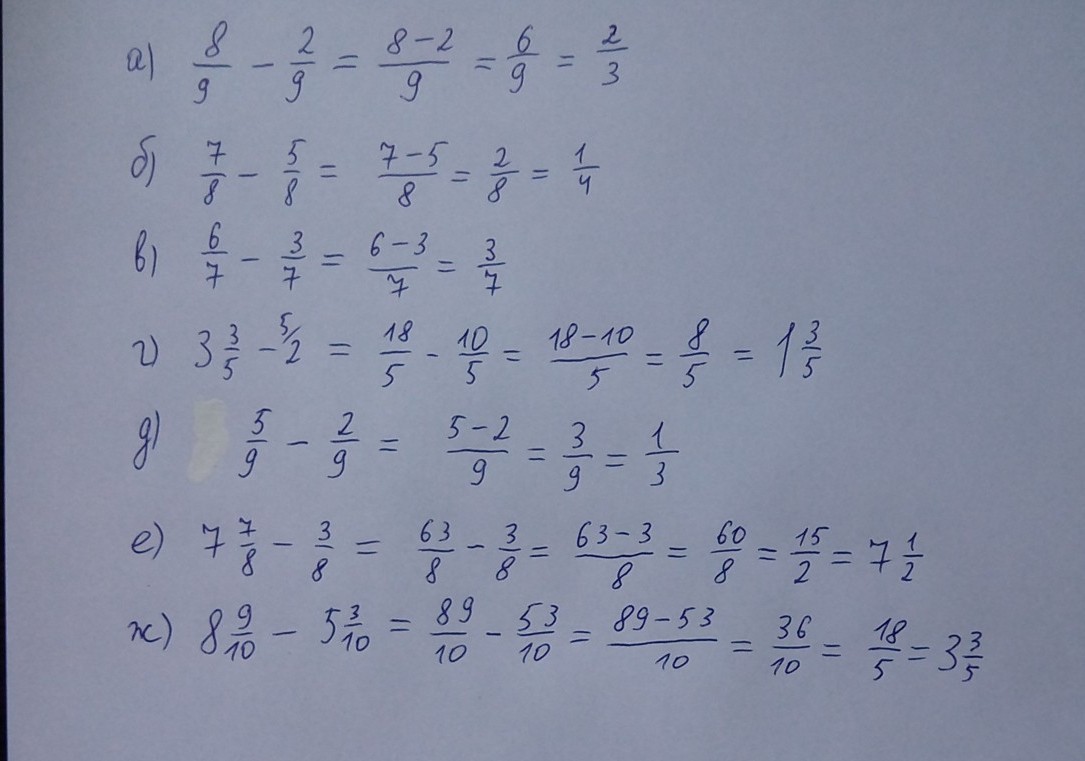 а) 8/9 - 2/9 = (8-2)/9 = 6/9 = 2/3
б) 7/8 - 5/8 = (7-5)/8 = 2/8 = 1/4
в) 6/7 - 3/7 = (6-3)/7 = 3/7
г) 3 3/5 - ⁵⁄2 = 18/5 - 10/5 = (18-10)/5 = 8/5 = 1 3/5
д) 5/9 - 2/9 = (5-2)/9 = 3/9 = 1/3
е) 7 7/8 - 3/8 = 63/8 - 3/8 = (63-3)/8 = 60/8 = 15/2 = 7 1/2
ж) 8 9/10 - 5 3/10 = 89/10 - 53/10 = (89-53)/10 = 36/10 = 18/5 = 3 3/5